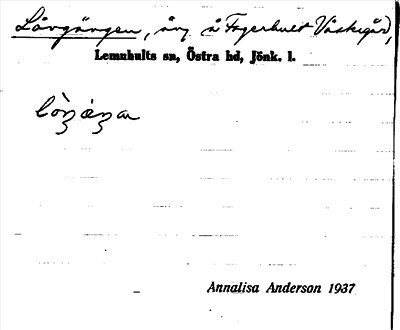 Lövgången, äng å Fagerhult Västergård,
Lemnhults sn, Östra hd, Jönk. l.
Annalisa Anderson 1937